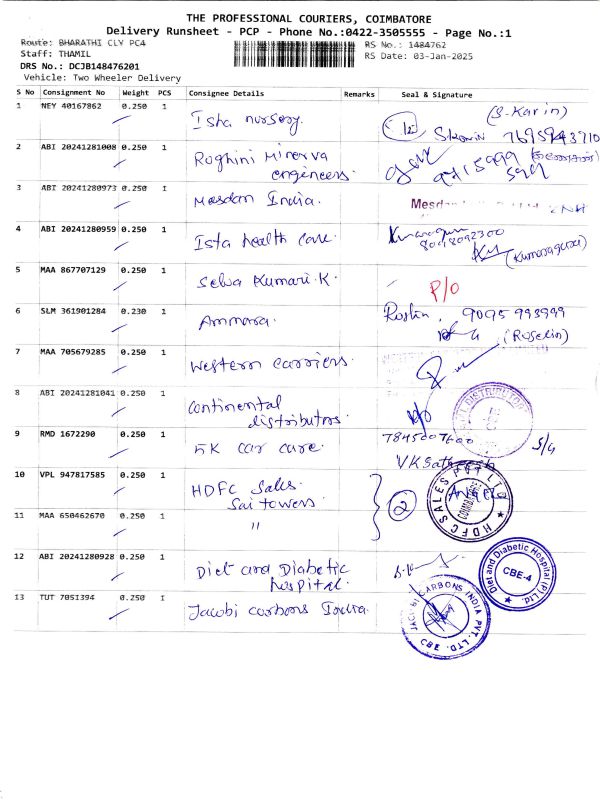 THE PROFESSIONAL COURIERS, COIMBATORE
Delivery Runsheet - PCP - Phone No.:0422-3505555 - Page No.:1
Route: BHARATHI CLY PC4
RS No.: 1484762
Staff: THAMIL
RS Date: 03-Jan-2025
DRS No.: DCJB148476201
Vehicle: Two Wheeler Delivery
S No Consignment No Weight PCS Consignee Details Remarks Seal & Signature
1 NEY 40167862 0.250 1 Isha nursery. (S. Karin)
7695943710
2 ABI 20241281008 0.250 1 Roghini Minerva
engineers.
3 ABI 20241280973 0.250 1 Mesdan India. Mesdan
4 ABI 20241280959 0.250 1 Ista health care. Kumaraguru
8098092300
(Kumaraguru)
5 MAA 867707129 0.250 1 Selva Kumari. K. P/O
6 SLM 361901284 0.230 1 Ammara. Roslin. 9095993999
(Roselin)
7 MAA 705679285 0.250 1 Western carriers.
8 ABI 20241281041 0.250 1 Continental
distributors. DISTRIBUTORS
9 RMD 1672290 0.250 1 5K car care. 7845007600
S/G
VK Sathish
10 VPL 947817585 0.250 1 HDFC Sales.
Sai towers. 2 HDFC SALES PVT LTD
COIMBATORE
11 MAA 650462670 0.250 1 "
12 ABI 20241280928 0.250 1 Diet and Diabetic
hospital. Diet and Diabetic Hospital (P) Ltd.
CBE-4
13 TUT 7051394 0.250 1 Jacobi carbons India. JACOBI CARBONS INDIA PVT. LTD.
CBE